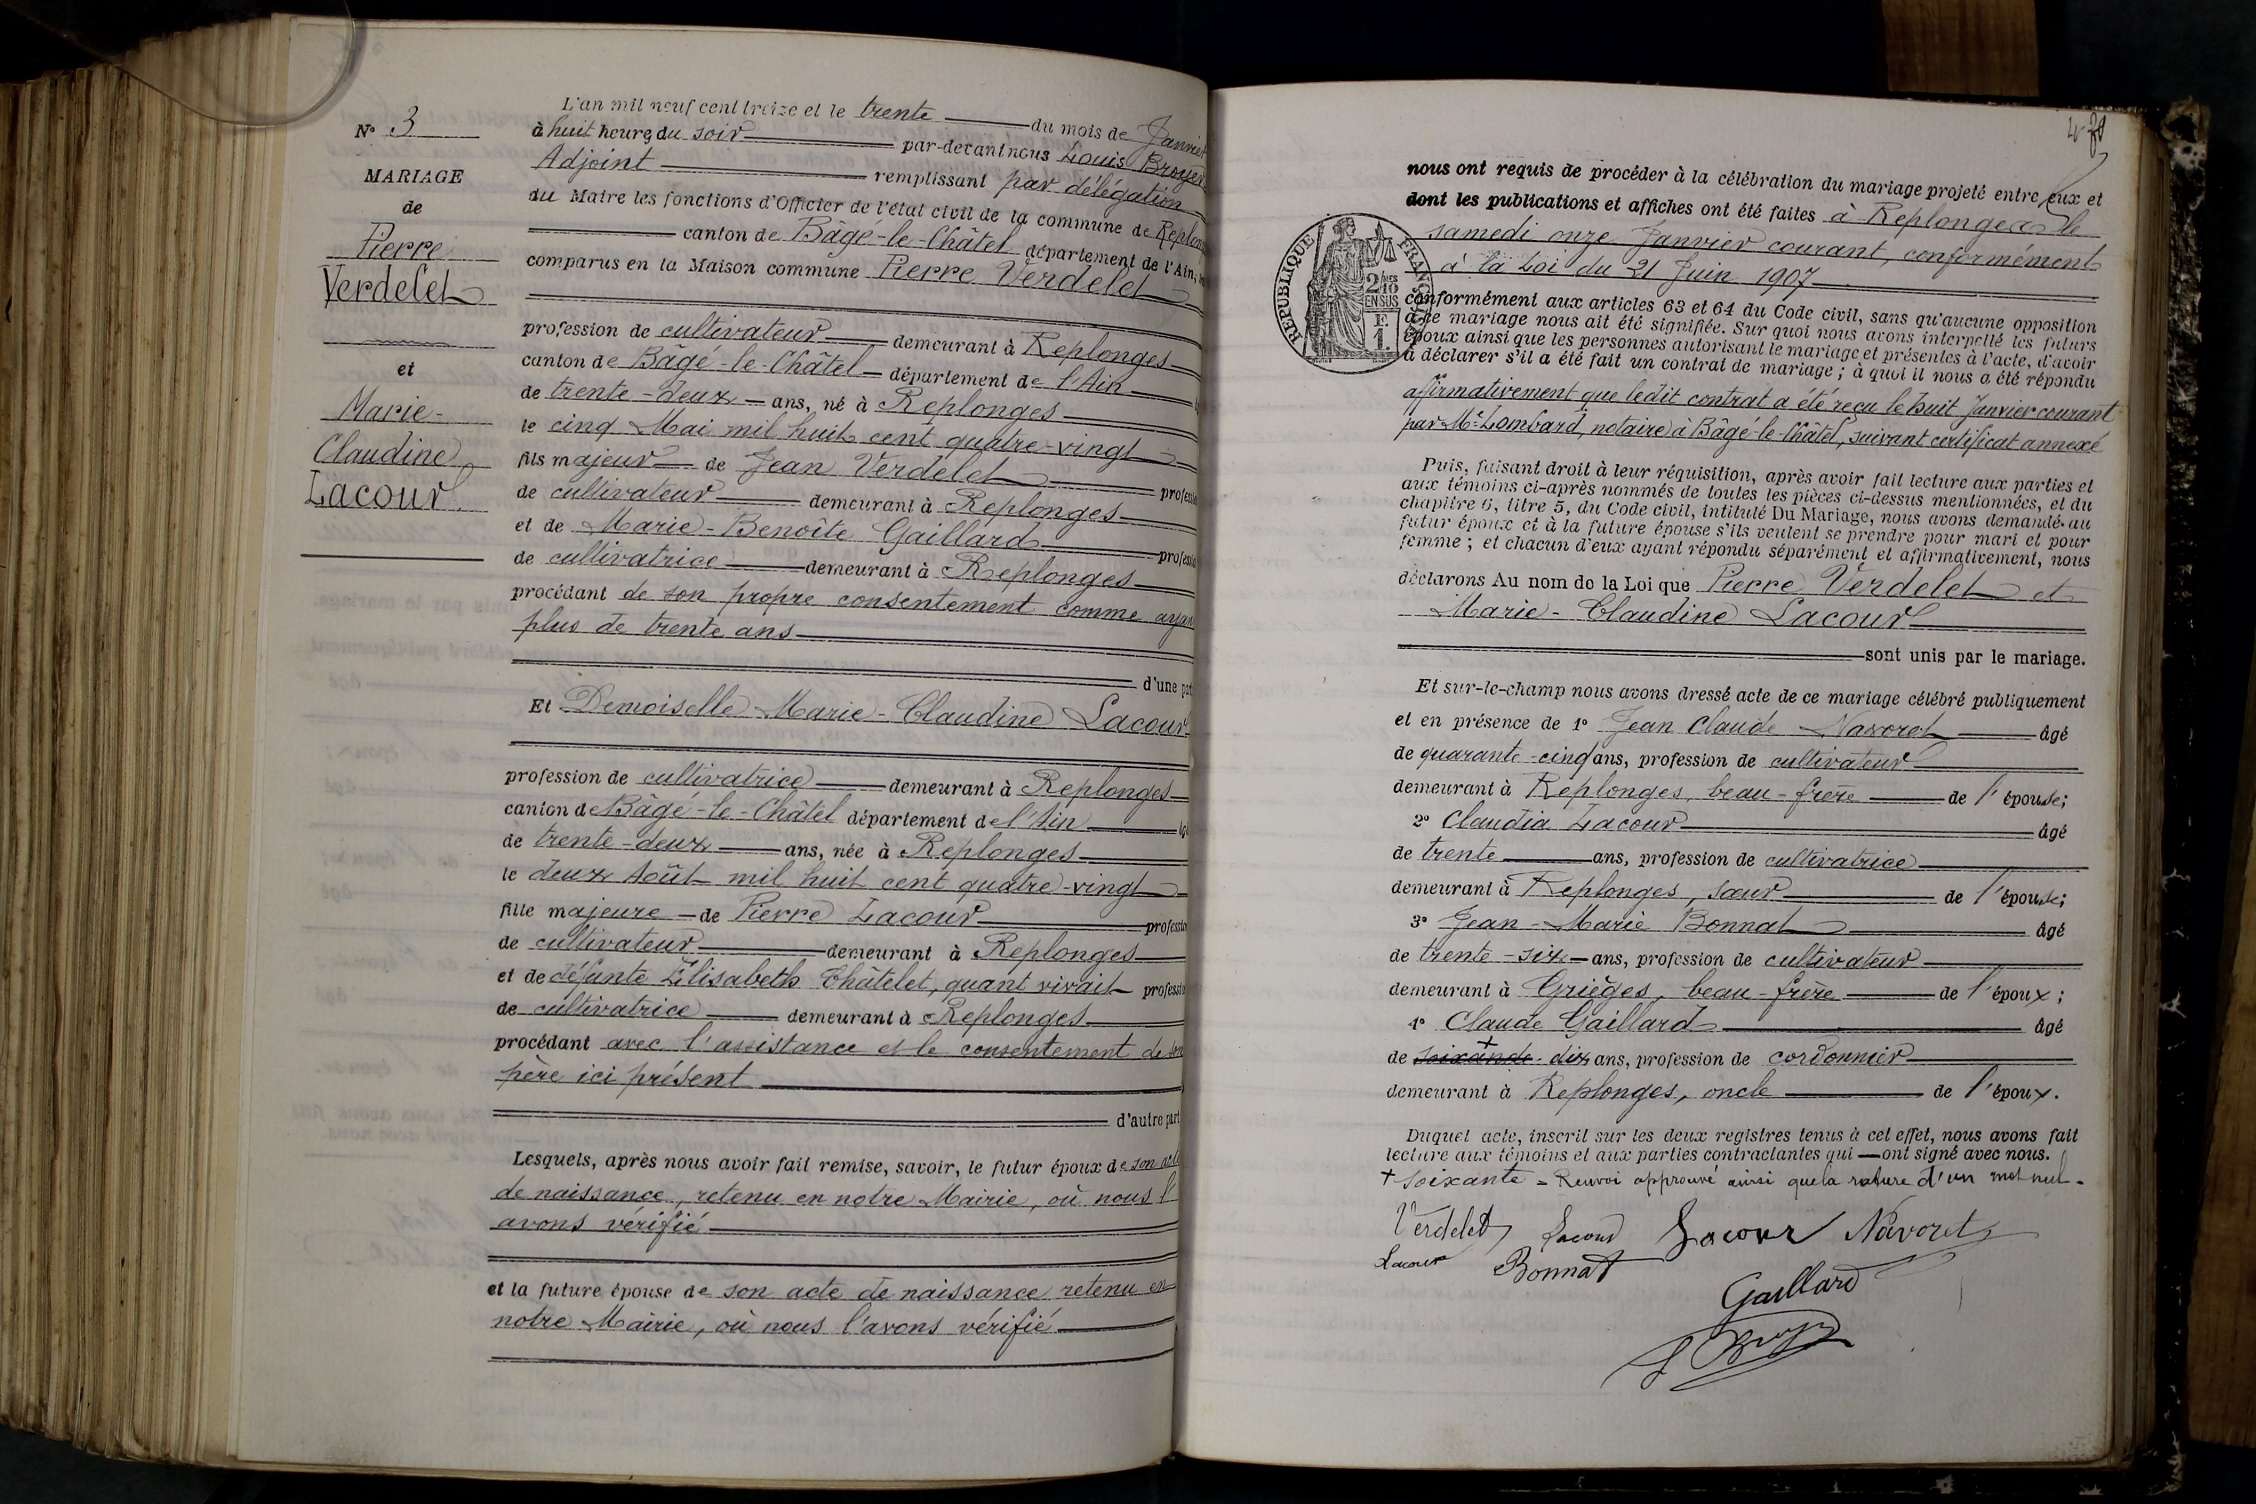 N° 3
MARIAGE
de
Pierre
Verdelet
et
Marie-
Claudine
Lacour
L'an mil neuf cent treize et le trente du mois de Janvier
à huit heures du soir par-devant nous Louis Broyer
Adjoint remplissant par délégation
du Maire les fonctions d'Officier de l'état civil de la commune de Replonges
canton de Bâgé-le-Châtel département de l'Ain,
comparus en la Maison commune Pierre Verdelet
profession de cultivateur demeurant à Replonges
canton de Bâgé-le-Châtel département de l'Ain
de trente-deux ans, né à Replonges
le cinq Mai mil huit cent quatre-vingt
fils majeur de Jean Verdelet profession
de cultivateur demeurant à Replonges
et de Marie-Benoîte Gaillard profession
de cultivatrice demeurant à Replonges
procédant de son propre consentement comme ayant
plus de trente ans
d'une part
Et Demoiselle Marie-Claudine Lacour
profession de cultivatrice demeurant à Replonges
canton de Bâgé-le-Châtel département de l'Ain âgé
de trente-deux ans, née à Replonges
le deux Août mil huit cent quatre-vingt
fille majeure de Pierre Lacour profession
de cultivateur demeurant à Replonges
et de défunte Élisabeth Châtelet, quant vivait profession
de cultivatrice demeurant à Replonges
procédant avec l'assistance et le consentement de son
père ici présent
d'autre part
Lesquels, après nous avoir fait remise, savoir, le futur époux de son acte
de naissance, retenu en notre Mairie, où nous l'
avons vérifié
et la future épouse de son acte de naissance retenu en
notre Mairie, où nous l'avons vérifié
nous ont requis de procéder à la célébration du mariage projeté entre eux et
dont les publications et affiches ont été faites à Replonges le
samedi onze Janvier courant, conformément
à la Loi du 21 Juin 1907
REPUBLIQUE FRANÇAISE
2/10
EN SUS
F.
1.
conformément aux articles 63 et 64 du Code civil, sans qu'aucune opposition
à ce mariage nous ait été signifiée. Sur quoi nous avons interpellé les futurs
époux ainsi que les personnes autorisant le mariage et présentes à l'acte, d'avoir
à déclarer s'il a été fait un contrat de mariage ; à quoi il nous a été répondu
affirmativement que ledit contrat a été reçu le huit Janvier courant
par Me Lombard, notaire à Bâgé-le-Châtel, suivant certificat annexé
Puis, faisant droit à leur réquisition, après avoir fait lecture aux parties et
aux témoins ci-après nommés de toutes les pièces ci-dessus mentionnées, et du
chapitre 6, titre 5, du Code civil, intitulé Du Mariage, nous avons demandé au
futur époux et à la future épouse s'ils veulent se prendre pour mari et pour
femme ; et chacun d'eux ayant répondu séparément et affirmativement, nous
déclarons Au nom de la Loi que Pierre Verdelet et
Marie-Claudine Lacour
sont unis par le mariage.
Et sur-le-champ nous avons dressé acte de ce mariage célébré publiquement
et en présence de 1° Jean Claude Navoret âgé
de quarante-cinq ans, profession de cultivateur
demeurant à Replonges, beau-frère de l'épouse;
2° Claudia Lacour âgé
de trente ans, profession de cultivatrice
demeurant à Replonges, sœur de l'épouse;
3° Jean-Marie Bonnat âgé
de trente-six ans, profession de cultivateur
demeurant à Grièges, beau-frère de l'époux;
4° Claude Gaillard âgé
de soixande + dix ans, profession de cordonnier
demeurant à Replonges, oncle de l'époux.
Duquel acte, inscrit sur les deux registres tenus à cet effet, nous avons fait
lecture aux témoins et aux parties contractantes qui ont signé avec nous.
+ soixante = Renvoi approuvé ainsi que la rature d'un mot nul.
Verdelet Lacour Lacour Navoret
Lacour Bonnat
Gaillard
L Broyer